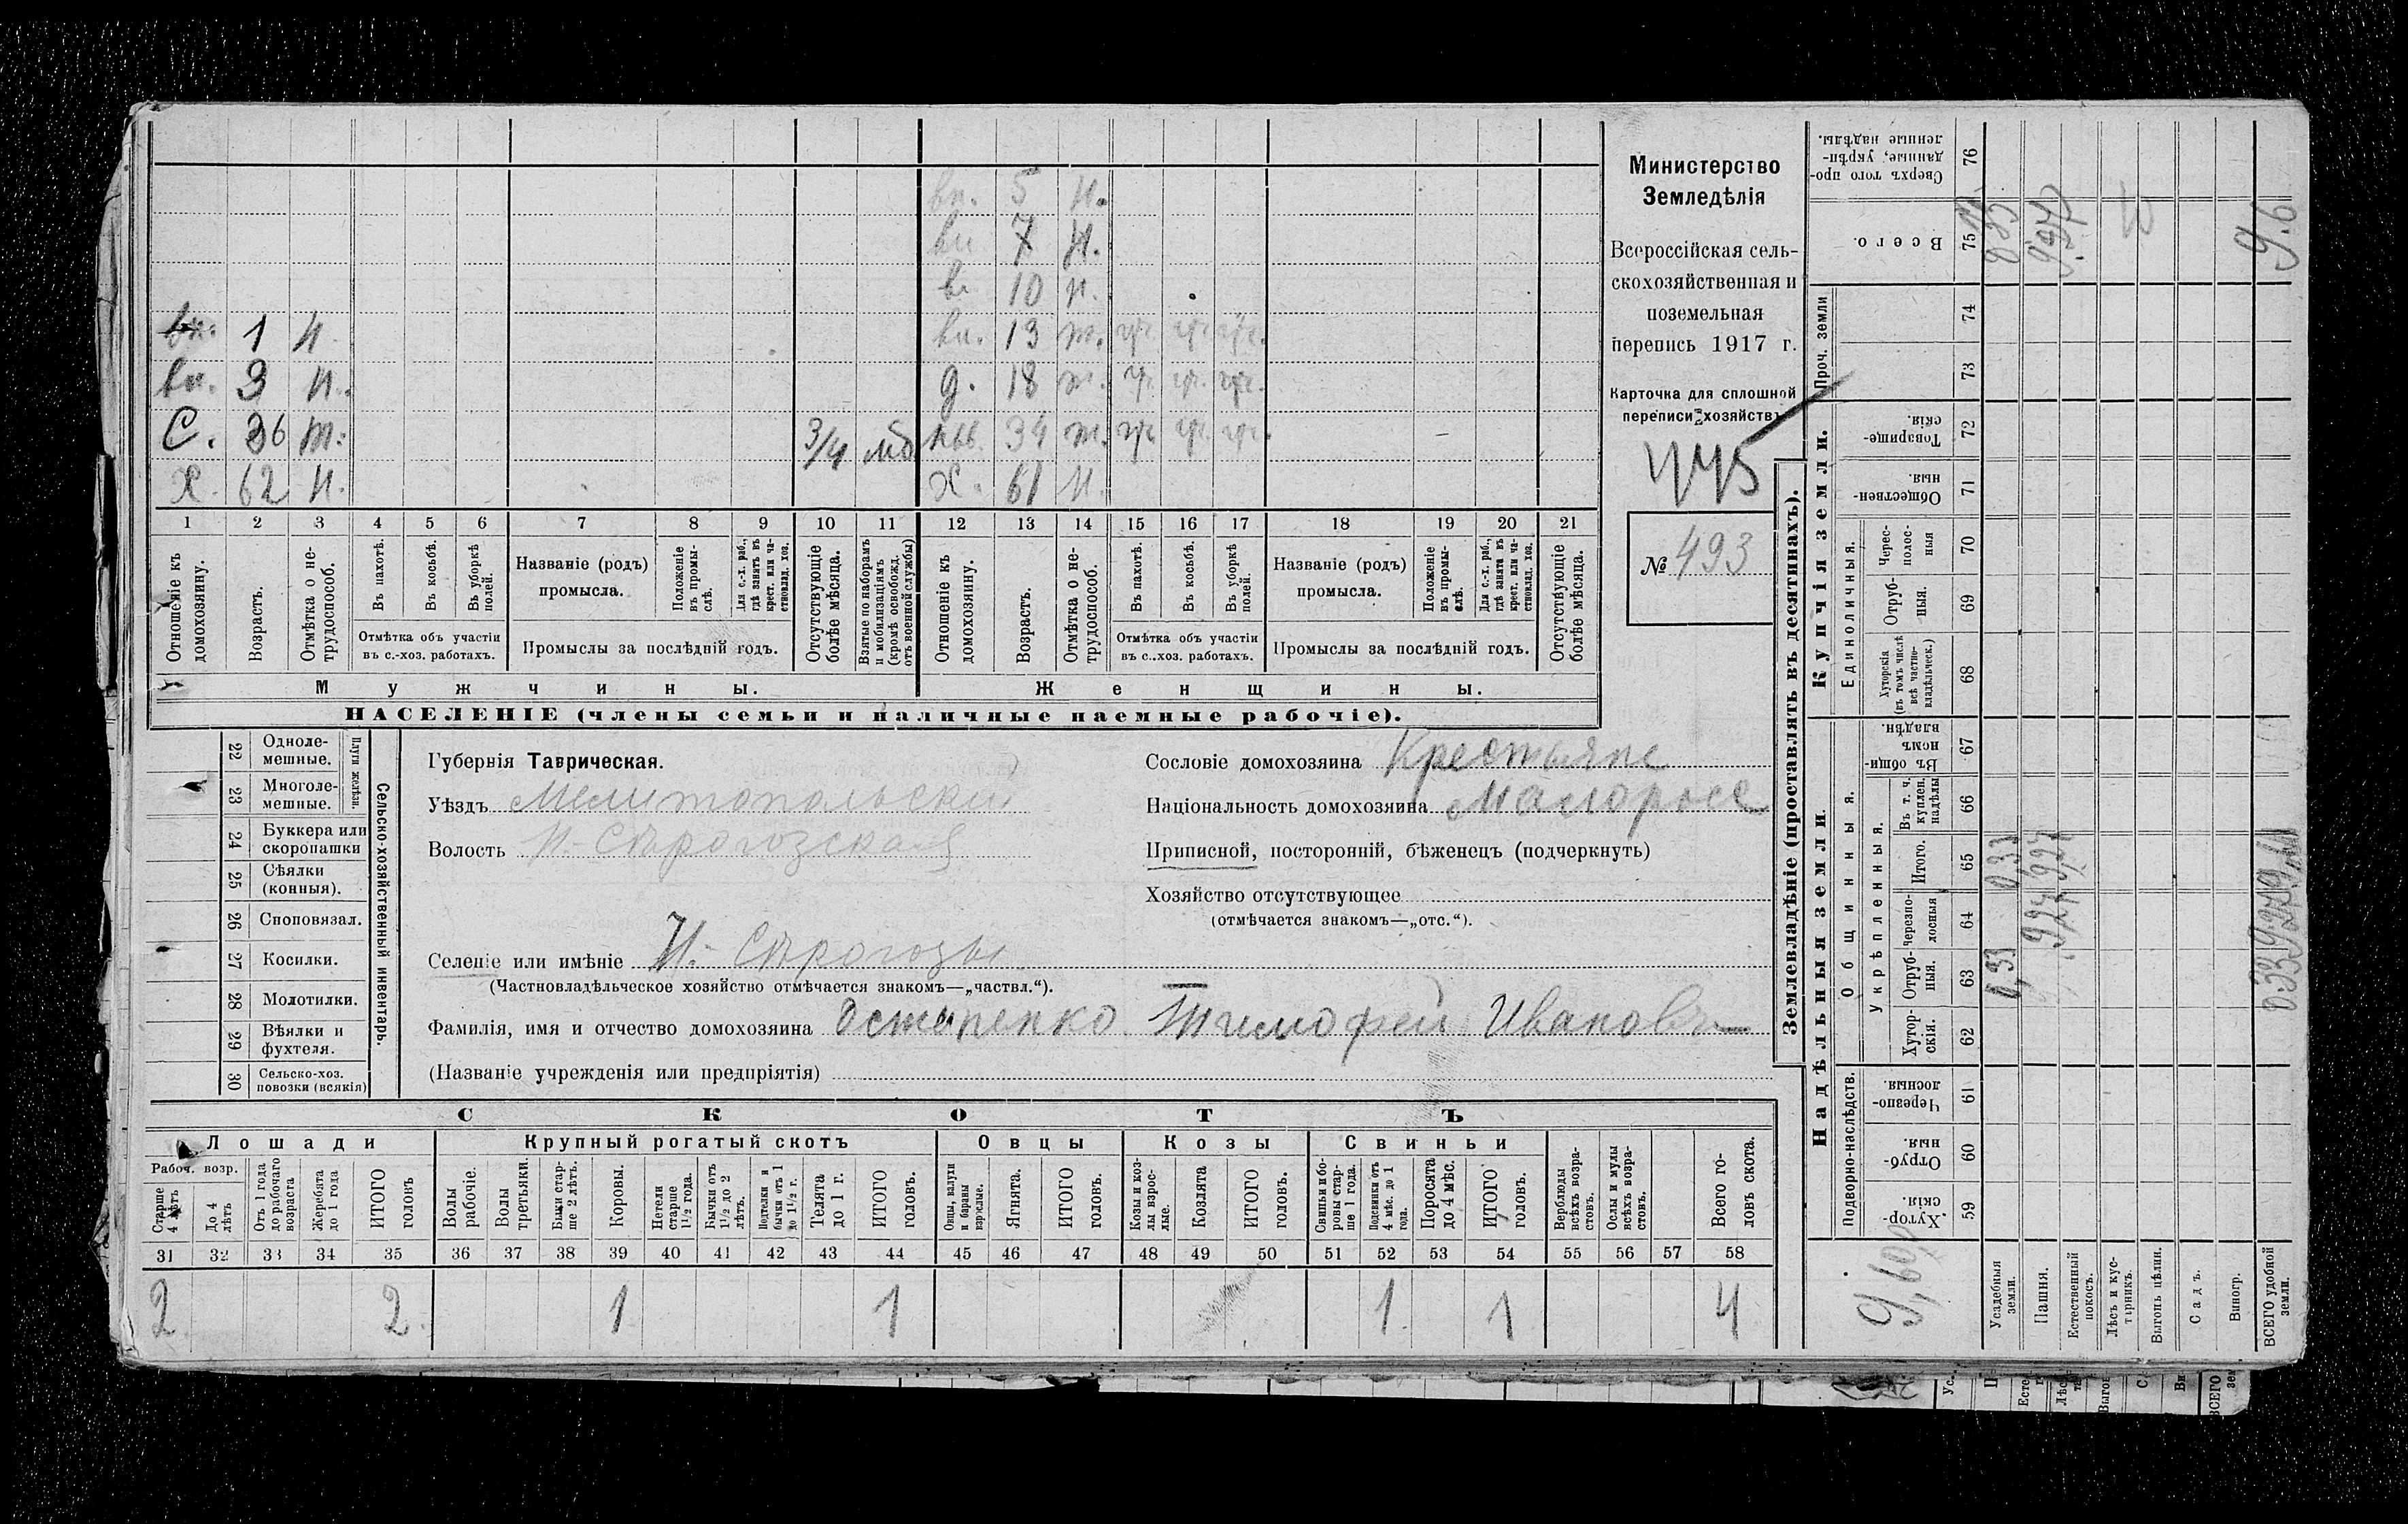 вн. 5 н.
вн 7 н.
вн 10 н.
вн. 1 н
вн. 13 т. уч. уч. уч.
вн. 3 н.
д. 18 т. уч. уч. уч.
С. 36 т. 3/4 моб.
нев. 34 т. уч. уч. уч.
Х. 62 н.
Х. 61 н.
1 2 3 4 5 6 7 8 9 10 11 12 13 14 15 16 17 18 19 20 21
Отношеніе къ домохозяину.
Возрастъ.
Отмѣтка о не-трудоспособ.
Въ пахотѣ.
Въ косьбѣ.
Въ уборкѣ полей.
Отмѣтка объ участіи
въ с.-хоз. работахъ.
Названіе (родъ)
промысла.
Положеніе въ промы-слѣ.
Для с.-х. раб., гдѣ занятъ въ крест. или ча-стновлад. хоз.
Промыслы за послѣдній годъ.
Отсутствующіе болѣе мѣсяца.
Взятые по наборамъ и мобилизаціямъ (кромѣ освобожд. отъ военной службы)
Отношеніе къ домохозяину.
Возрастъ.
Отмѣтка о не-трудоспособ.
Въ пахотѣ.
Въ косьбѣ.
Въ уборкѣ полей.
Отмѣтка объ участіи
въ с.-хоз. работахъ.
Названіе (родъ)
промысла.
Положеніе въ промы-слѣ.
Для с.-х. раб., гдѣ занята въ крест. или ча-стновлад. хоз.
Промыслы за послѣдній годъ.
Отсутствующіе болѣе мѣсяца.
Мужчины.
Женщины.
НАСЕЛЕНІЕ (члены семьи и наличные наемные рабочіе).
Министерство
Земледѣлія
Всероссійская сель-
скохозяйственная и
поземельная
перепись 1917 г.
Карточка для сплошной
переписи хозяйствъ
445
№ 493
22 Одноле-
мешные.
23 Многоле-
мешные.
Плуги желѣзн.
24 Буккера или
скоропашки
25 Сѣялки
(конныя).
26 Сноповязал.
27 Косилки.
28 Молотилки.
29 Вѣялки и
фухтеля.
30 Сельско-хоз.
повозки (всякія)
Сельско-хозяйственный инвентарь.
Губернія Таврическая.
Уѣздъ Мелитопольскій
Волость Н.-Сѣрогозская
Сословіе домохозяина Крестьяне
Національность домохозяина Малоросс
Приписной, посторонній, бѣженецъ (подчеркнуть)
Хозяйство отсутствующее
(отмѣчается знакомъ—„отс.“).
Селеніе или имѣніе Н. Сѣрогозы
(Частновладѣльческое хозяйство отмѣчается знакомъ—„частвл.“).
Фамилія, имя и отчество домохозяина Остапенко Тимофей Ивановъ
(Названіе учрежденія или предпріятія)
СКОТЪ
Лошади
Крупный рогатый скотъ
Овцы
Козы
Свиньи
Рабоч. возр.
Старше 4 лѣтъ
До 4 лѣтъ
Отъ 1 года до рабочаго возраста
Жеребята до 1 года
ИТОГО головъ
Волы рабочіе.
Волы третьяки.
Быки стар-ше 2 лѣтъ.
Коровы.
Нетели старше 1½ года.
Бычки отъ 1½ до 2 лѣтъ.
Подтелки и бычки отъ 1 до 1½ г.
Телята до 1 г.
ИТОГО головъ.
Овцы, валухи и бараны взрослые.
Ягнята.
ИТОГО головъ.
Козы и коз-лы взрос-лые.
Козлята
ИТОГО головъ.
Свиньи и бо-ровы стар-ше 1 года.
Подсвинки отъ 4 мѣс. до 1 года.
Поросята до 4 мѣс.
ИТОГО головъ.
Верблюды всѣхъ возра-стовъ.
Ослы и мулы всѣхъ возра-стовъ.
Всего го-ловъ скота.
31 32 33 34 35 36 37 38 39 40 41 42 43 44 45 46 47 48 49 50 51 52 53 54 55 56 57 58
2 2 1 1 1 1 4
Землевладѣніе (проставлять въ десятинахъ).
Надѣльныя земли.
Купчія земли.
Проч. земли
Подворно-наслѣдств.
Общинныя.
Укрѣпленныя.
Единоличныя.
Хутор-скія. 59
Отруб-ныя. 60
Черезпо-лосныя. 61
Хутор-скія. 62
Отруб-ныя. 63
черезпо-лосныя 64
Итого. 65
Въ т. ч. куплен. надѣлы 66
Въ общи-номъ владѣн. 67
Хуторскія (въ томъ числѣ всѣ частно-владѣльческ.) 68
Отруб-ныя. 69
Черес-полос-ныя 70
Обществен-ныя 71
Товарище-скія. 72
73
74
Всего. 75
Сверхъ того про-данные, укрѣп-ленные надѣлы. 76
9,60
Усадебныя земли. 0,33 0,33
Пашня. 9,27 9,27
Естественный покосъ.
Лѣсъ и кус-тарникъ.
Выгонъ цѣлин.
Садъ.
Виногр.
ВСЕГО удобной земли. 9.6